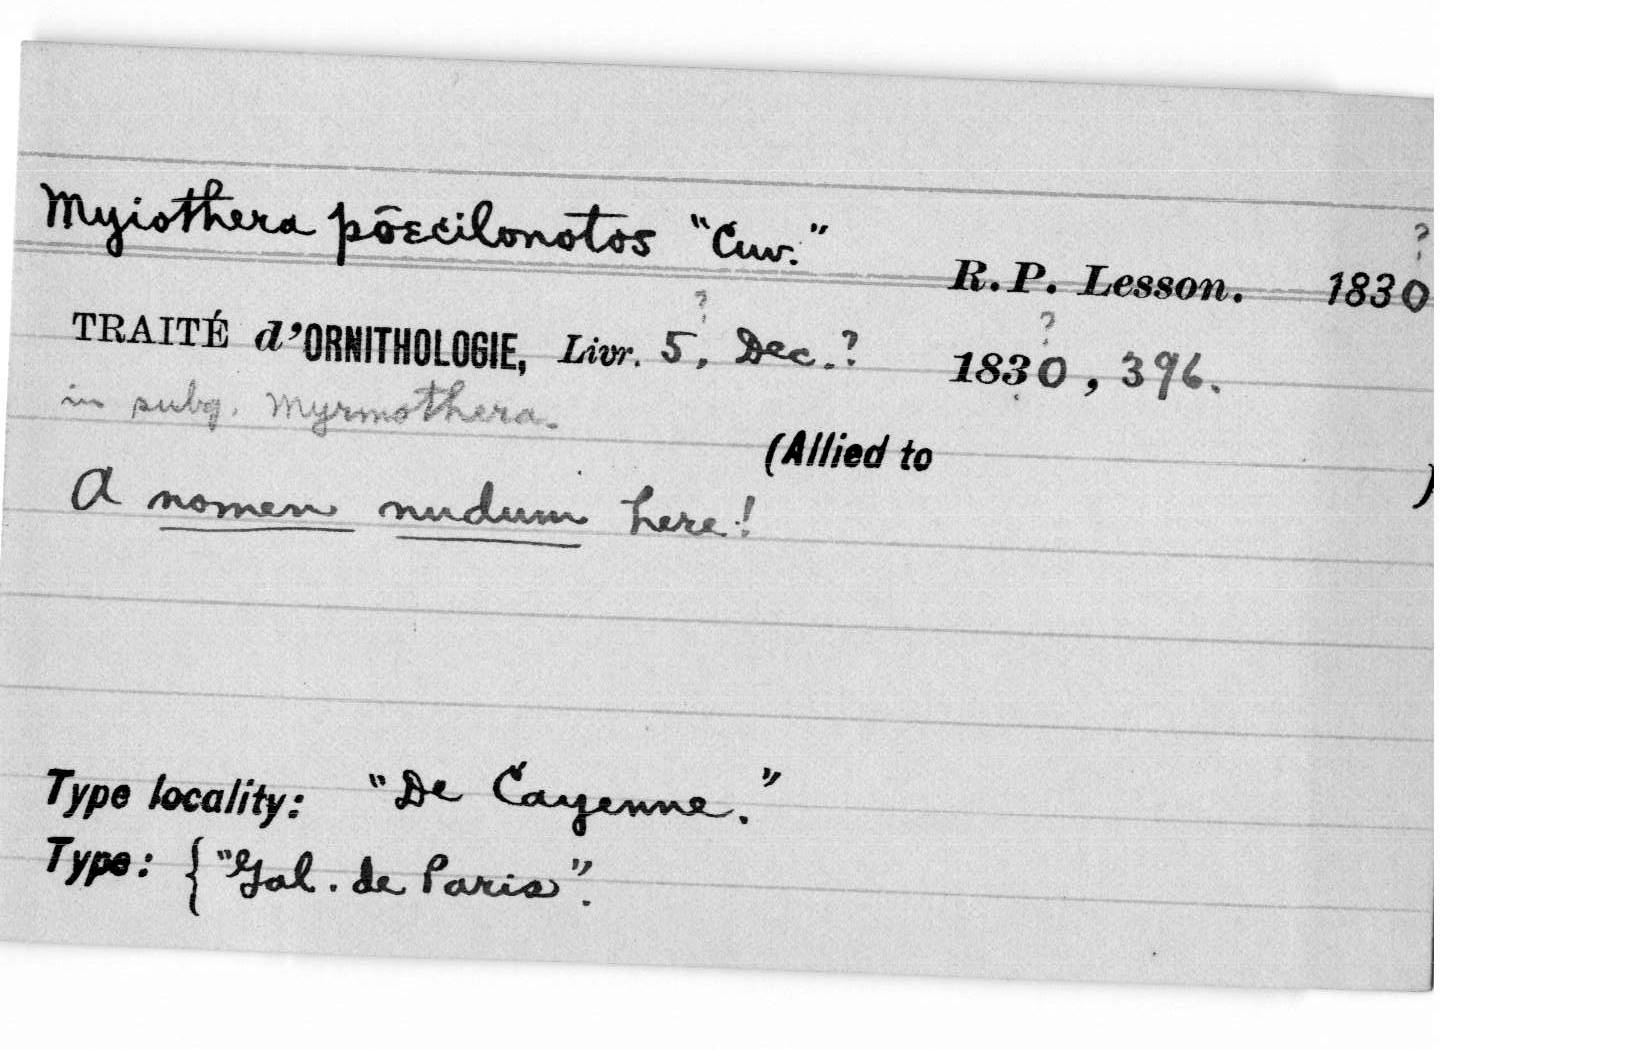 Myiothera põecilonotos "Cuv." R.P. Lesson. 1830?
TRAITÉ d'ORNITHOLOGIE, Livr. 5?, Dec.? 1830?, 396.
in subg. Myrmothera.
(Allied to )
A nomen nudum here!
Type locality: "De Cayenne."
Type: { "Gal. de Paris".